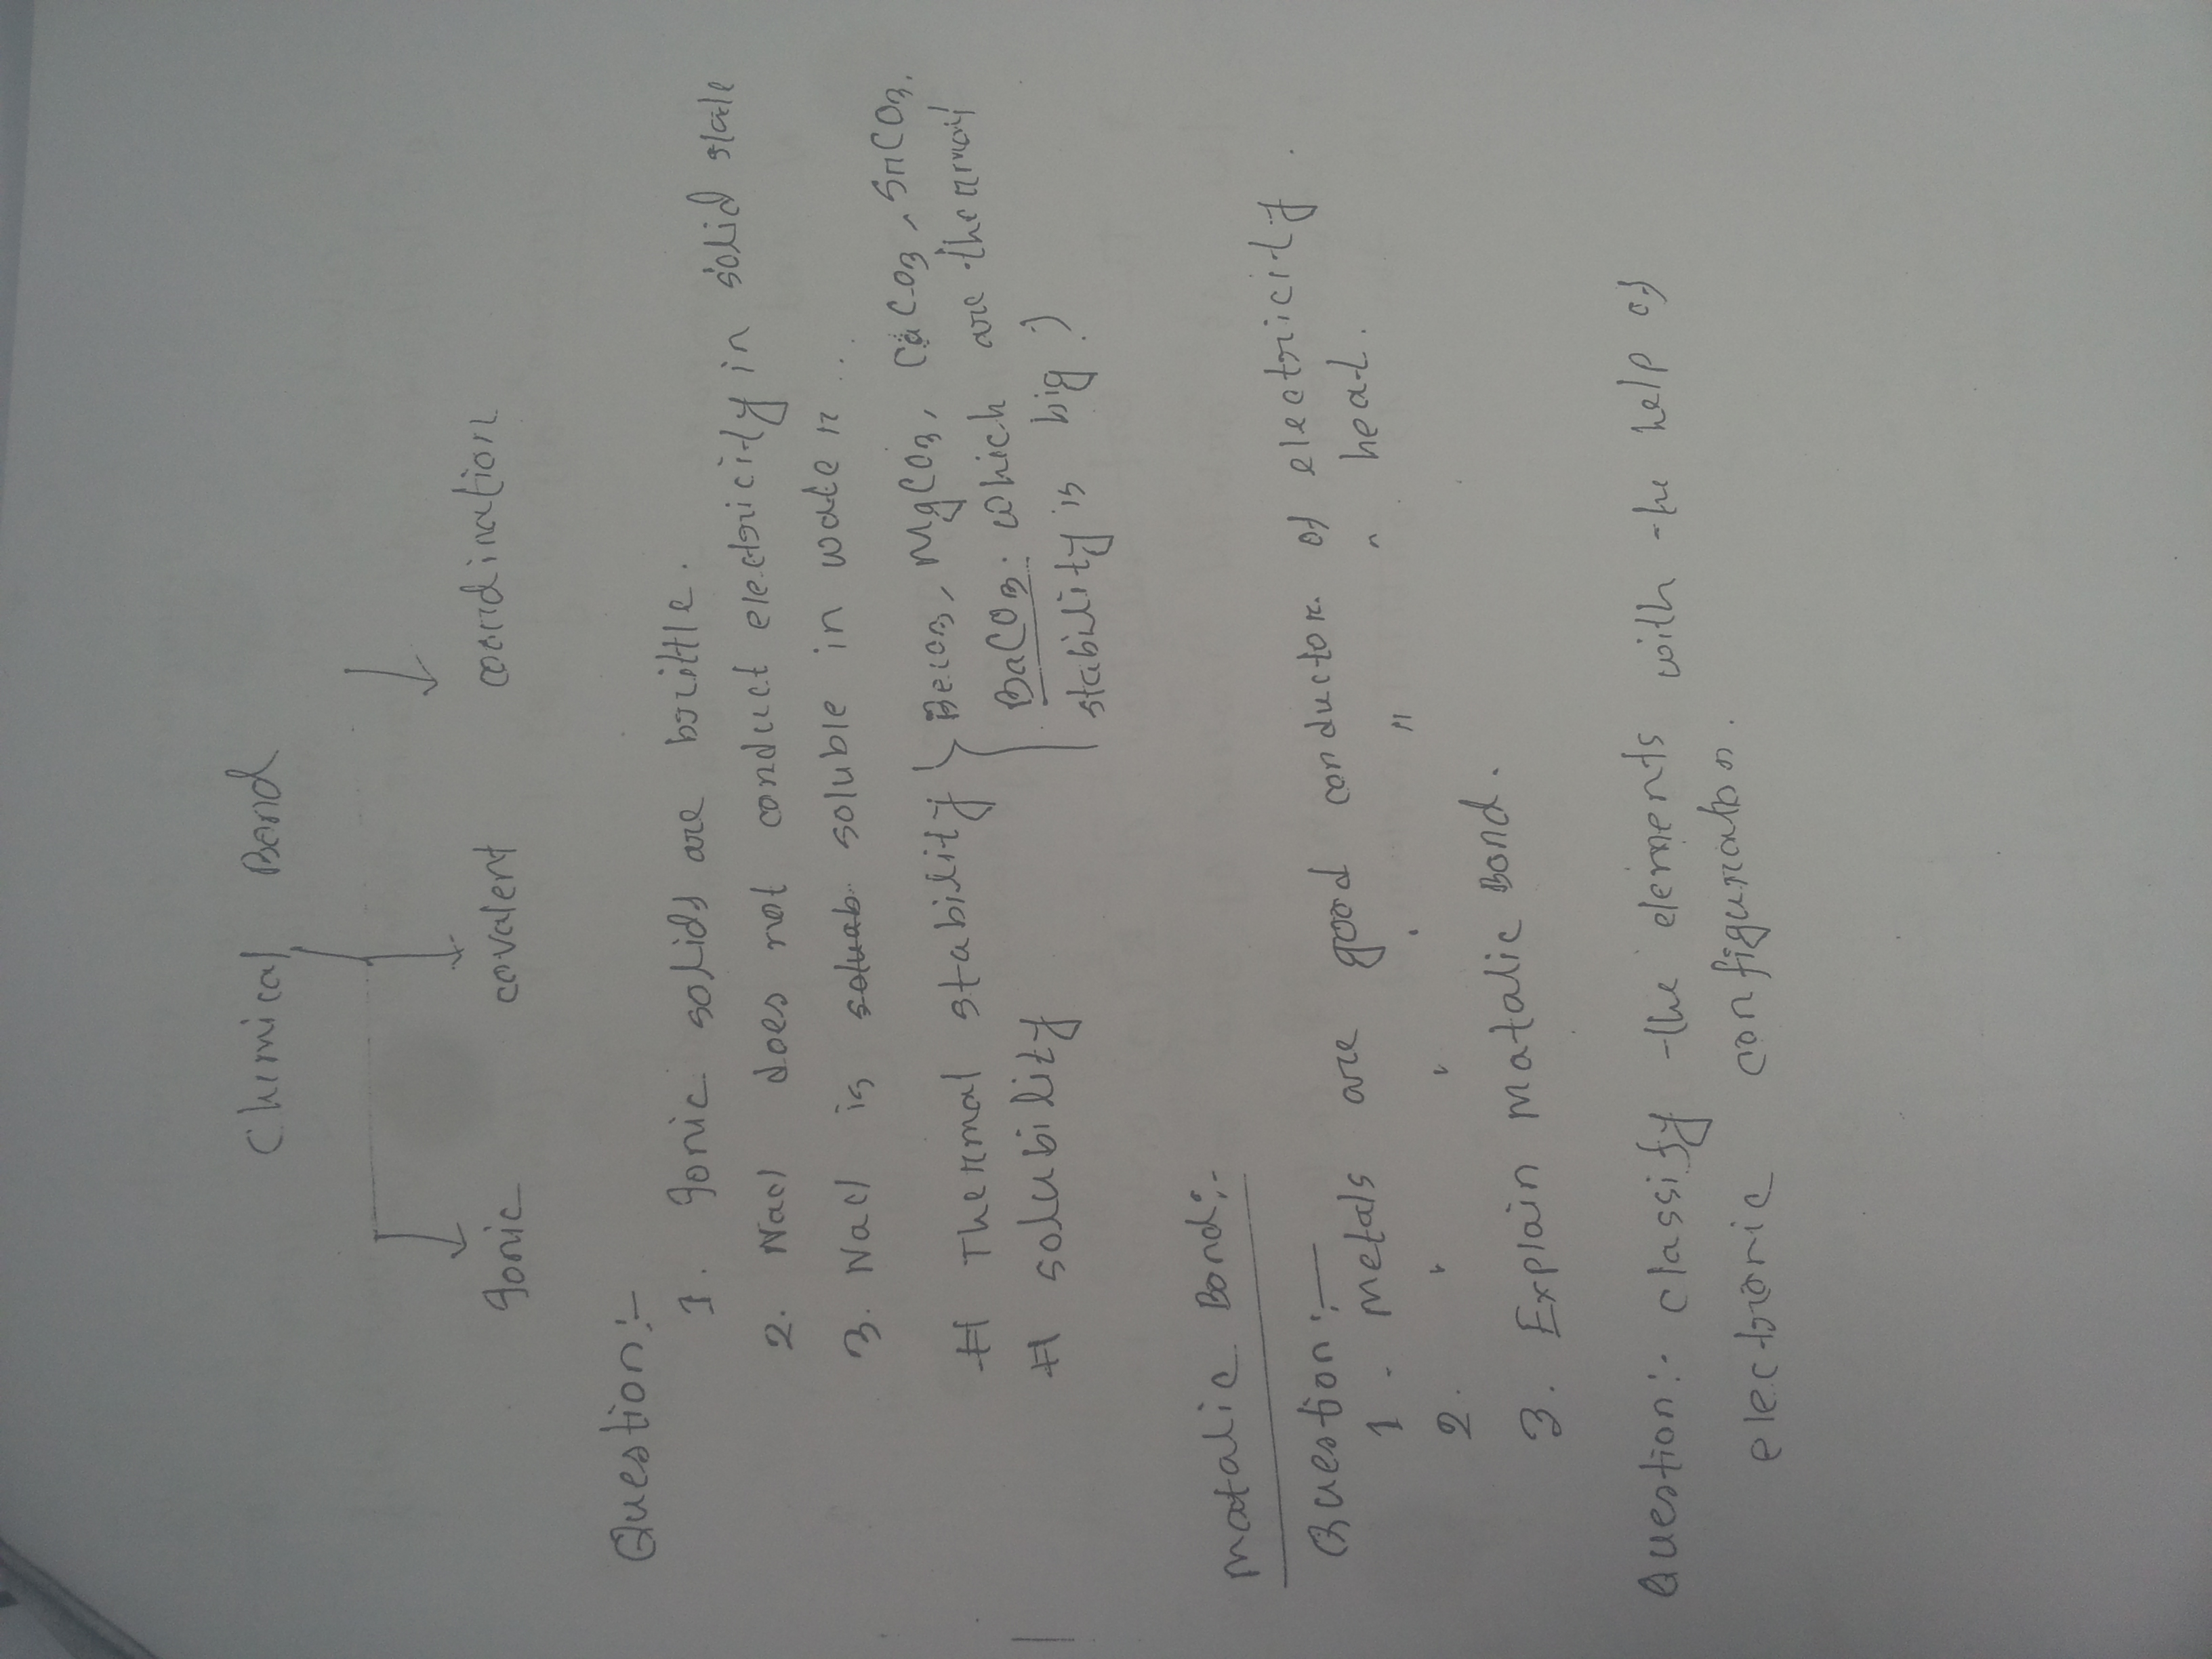 Chemical Bond
Ionic covalent coordination
Question:-
1. Ionic solids are brittle.
2. Nacl does not conduct electricity in solid state
3. Nacl is soluab soluble in water...
# Thermal stability } BeCO3, MgCO3, CaCO3, SrCO3,
BaCO3. which are thermal
stability is big?)
# solubility
Matalic Bond:-
Question:-
1. Metals are good conductor of electricity.
2. " " " " " heat.
3. Explain Matalic Bond.
Question:- classify the elements with the help of
electronic configuration.